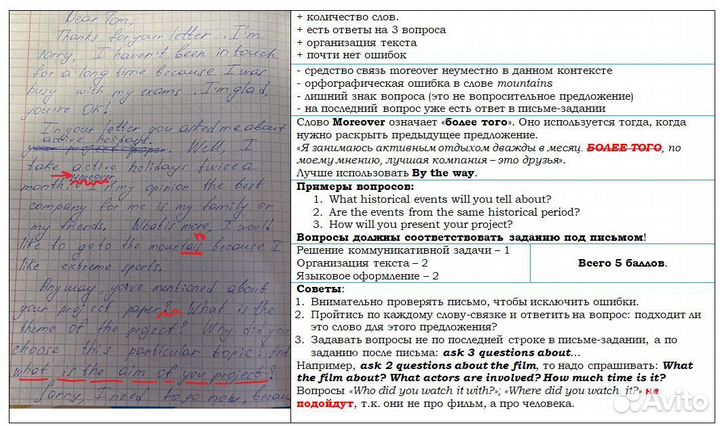 Dear Tom,
Thanks for your letter. I'm
sorry, I haven't been in touch
for a long time because I was
busy with my exams. I'm glad,
you're OK!
In your letter you asked me about
active holidays.
Well, I
take active holidays twice a
month. Moreover, my opinion the best
company for me is my family or
my friends. What is more, I would
like to go to the mountais because I
like extreme sports.
Anyway, you've mentioned about
your project paper? What is the
theme of the project? Why did you
choose this particular topic? And
what is the aim of you project?
Sorry, I need to go now, because
+ количество слов.
+ есть ответы на 3 вопроса
+ организация текста
+ почти нет ошибок
- средство связь moreover неуместно в данном контексте
- орфографическая ошибка в слове mountains
- лишний знак вопроса (это не вопросительное предложение)
- на последний вопрос уже есть ответ в письме-задании
Слово Moreover означает «более того». Оно используется тогда, когда
нужно раскрыть предыдущее предложение.
«Я занимаюсь активным отдыхом дважды в месяц. БОЛЕЕ ТОГО, по
моему мнению, лучшая компания – это друзья».
Лучше использовать By the way.
Примеры вопросов:
1. What historical events will you tell about?
2. Are the events from the same historical period?
3. How will you present your project?
Вопросы должны соответствовать заданию под письмом!
Решение коммуникативной задачи – 1
Организация текста – 2
Языковое оформление – 2
Всего 5 баллов.
Советы:
1. Внимательно проверять письмо, чтобы исключить ошибки.
2. Пройтись по каждому слову-связке и ответить на вопрос: подходит ли
это слово для этого предложения?
3. Задавать вопросы не по последней строке в письме-задании, а по
заданию после письма: ask 3 questions about…
Например, ask 2 questions about the film, то надо спрашивать: What
the film about? What actors are involved? How much time is it?
Вопросы «Who did you watch it with?»; «Where did you watch it?» не
подойдут, т.к. они не про фильм, а про человека.
Avito